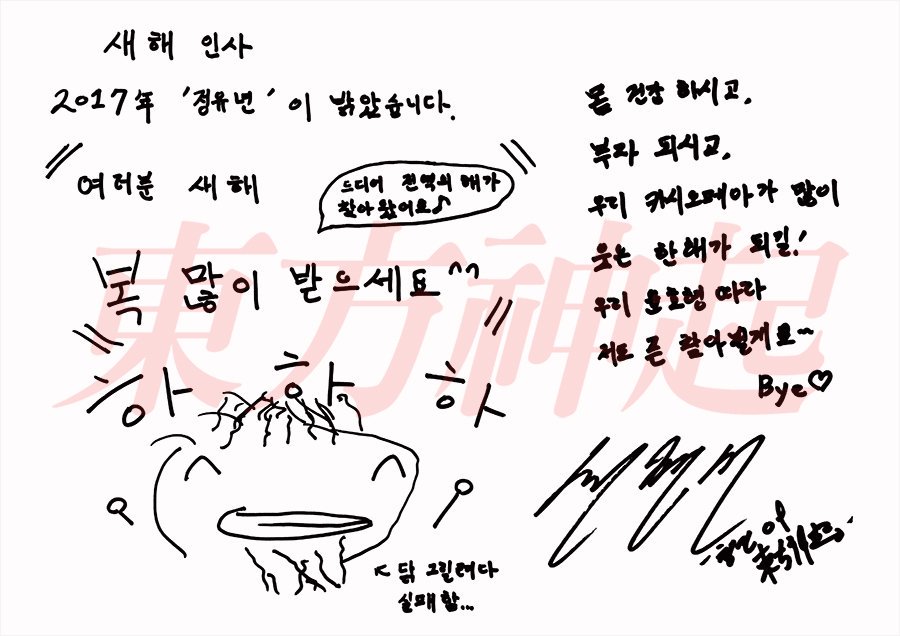 새해 인사
2017年 '정유년' 이 밝았습니다.
여러분 새해
드디어 전역의 해가
찾아왔어요♪
복 많이 받으세요^^
하 하 하
↖ 닭 그릴려다
실패함...
몸 건강 하시고,
부자 되시고,
우리 카시오페아가 많이
웃는 한 해가 되길!
우리 윤호형 따라
저도 곧 찾아뵐게요~
Bye♡
東方神起